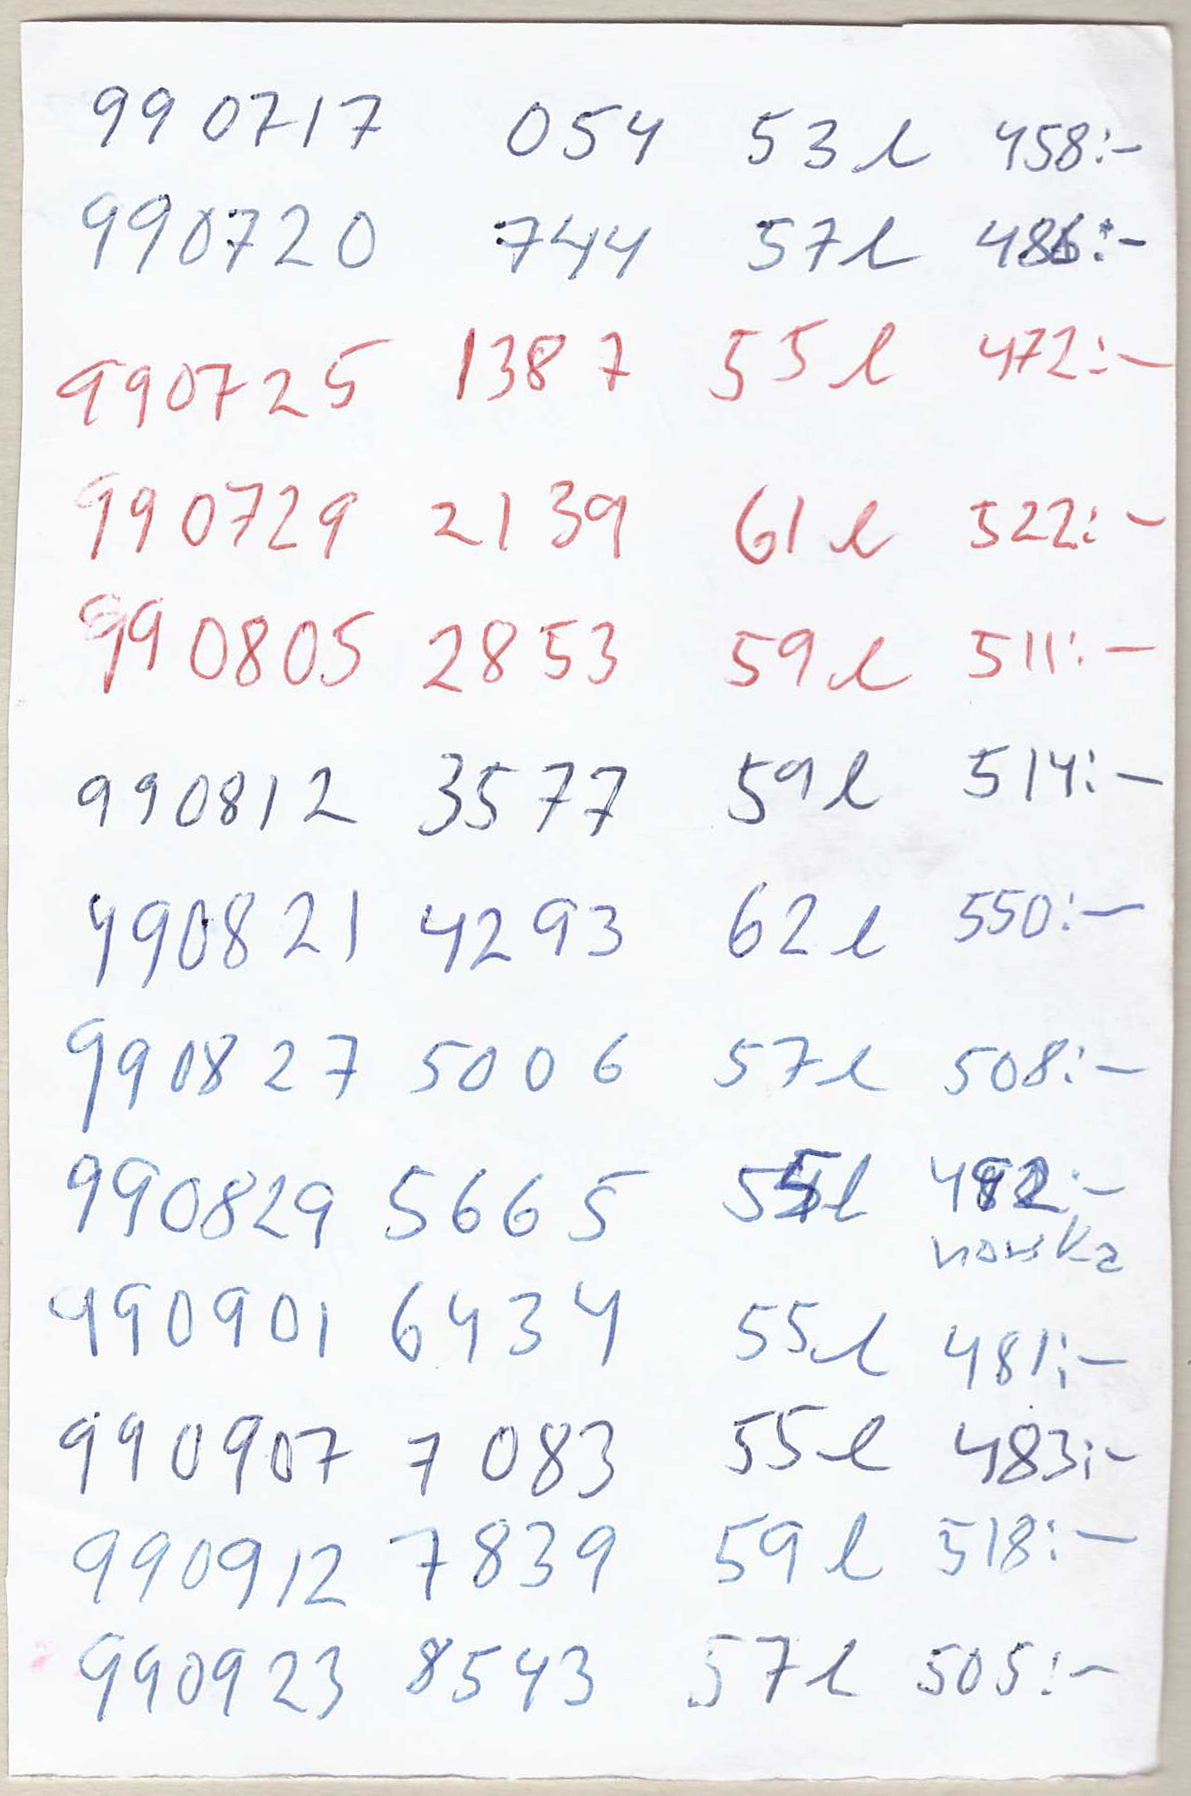 990717 054 53 l 458:-
990720 744 57 l 486:-
990725 1387 55 l 472:-
990729 2139 61 l 522:-
990805 2853 59 l 511:-
990812 3577 59 l 514:-
990821 4293 62 l 550:-
990827 5006 57 l 508:-
990829 5665 55 l 492:-
norska
990901 6434 55 l 481:-
990907 7083 55 l 483:-
990912 7839 59 l 518:-
990923 8543 57 l 505:-